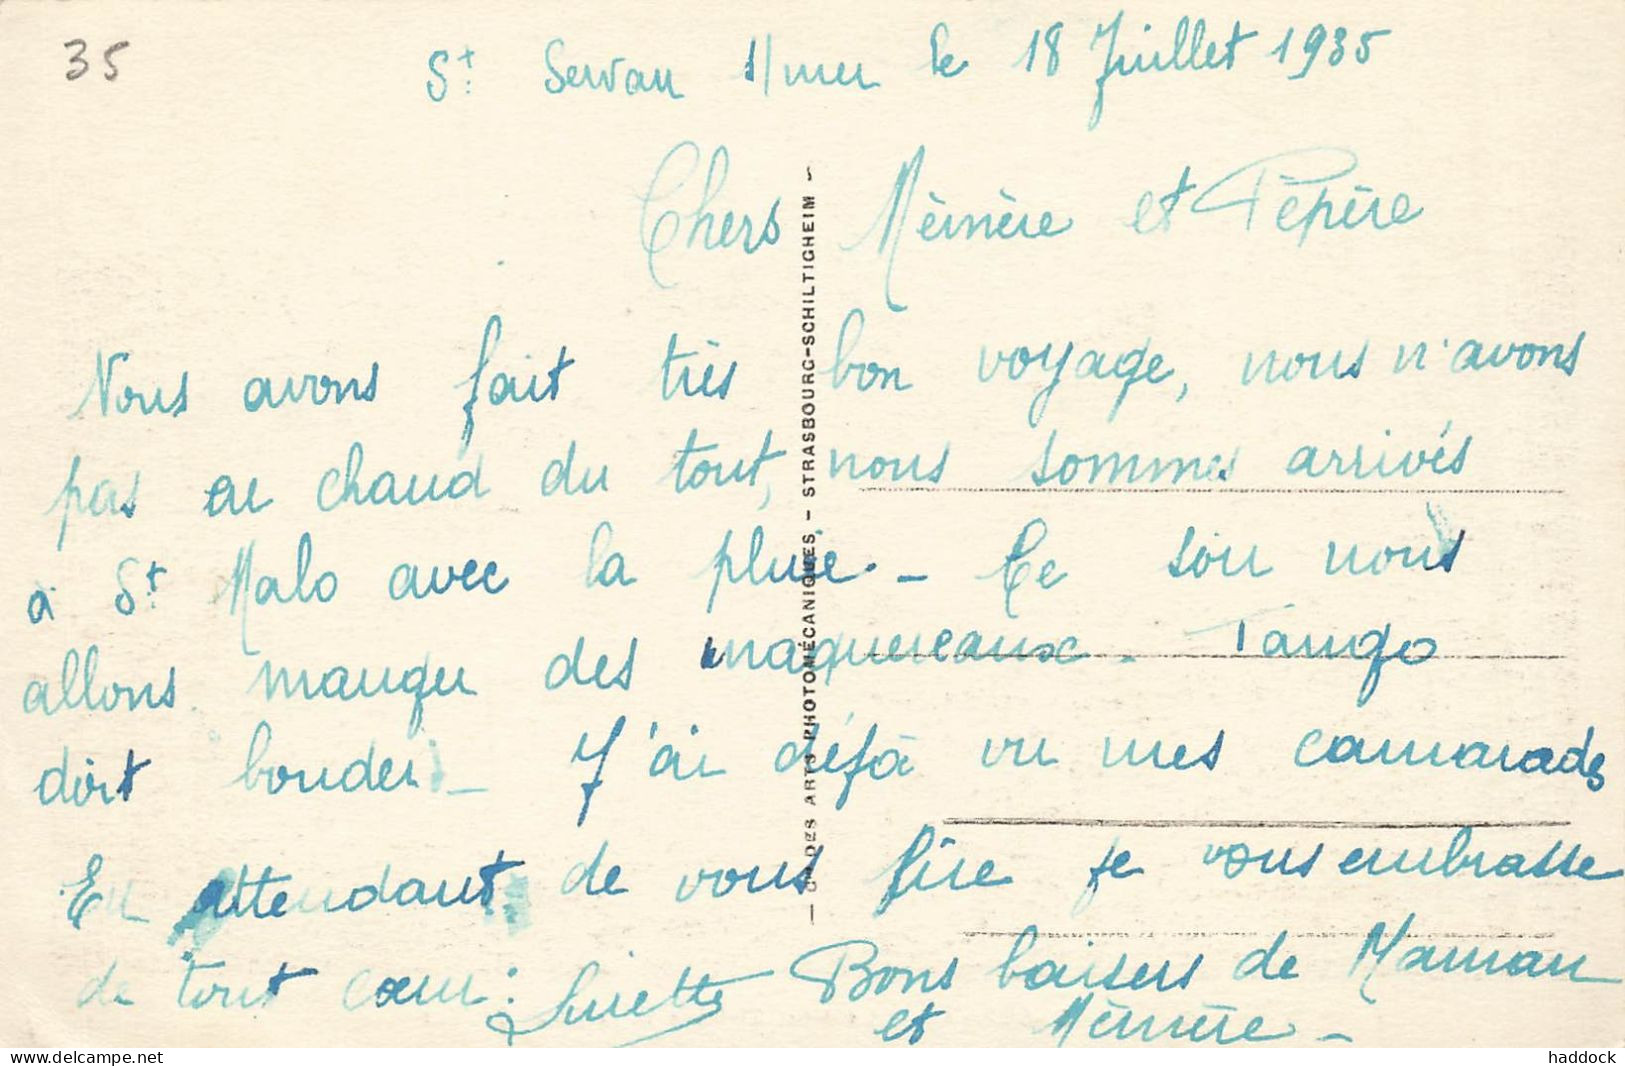 35
St Servan s/mer le 18 Juillet 1935
Chers Mémère et Pépère
Nous avons fait très bon voyage, nous n'avons
pas eu chaud du tout, nous sommes arrivés
à St Malo avec la pluie. _ Ce soir nous
allons manger des maquereaux. Tango
doit bouder _ J'ai déjà vu mes camarades
En attendant de vous lire je vous embrasse
de tout cœur: Lisette Bons baisers de Maman
et Mémère _
- Cie DES ARTS PHOTOMÉCANIQUES - STRASBOURG-SCHILTIGHEIM -
www.delcampe.net
haddock